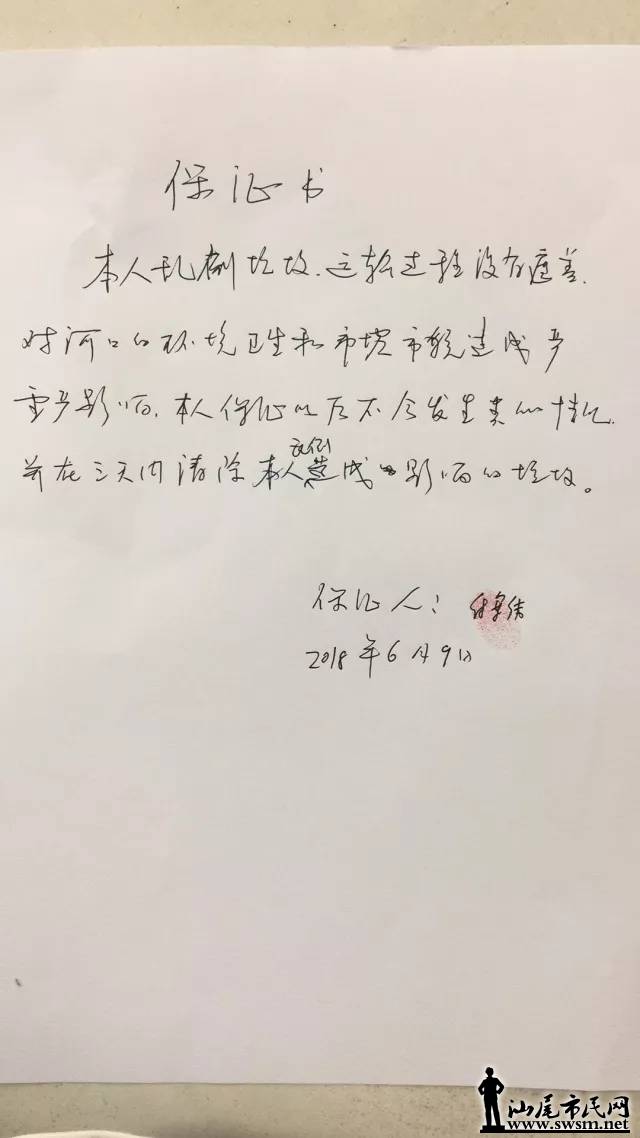 保证书
本人乱倒垃圾.运输过程没有遮盖.
对河口的环境卫生和市境市貌造成严
重影响.本人保证以后不会发生类似情况.
并在三天内清除本人乱倒造成影响的垃圾。
保证人:
2018年6月9日
汕尾市民网
www.swsm.net